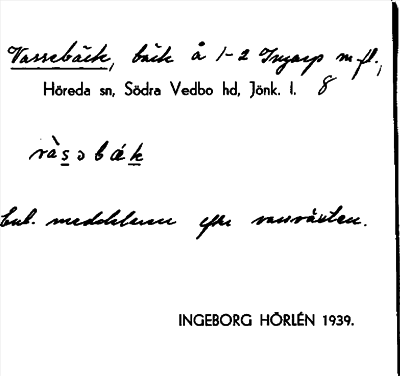 Vassebäck, bäck å 1-2 Ingarp m.fl.,
Höreda sn, Södra Vedbo hd, Jönk. l. 8
vàsɔbǽk
Enl. meddelaren efter vassväxten.
INGEBORG HÖRLÉN 1939.